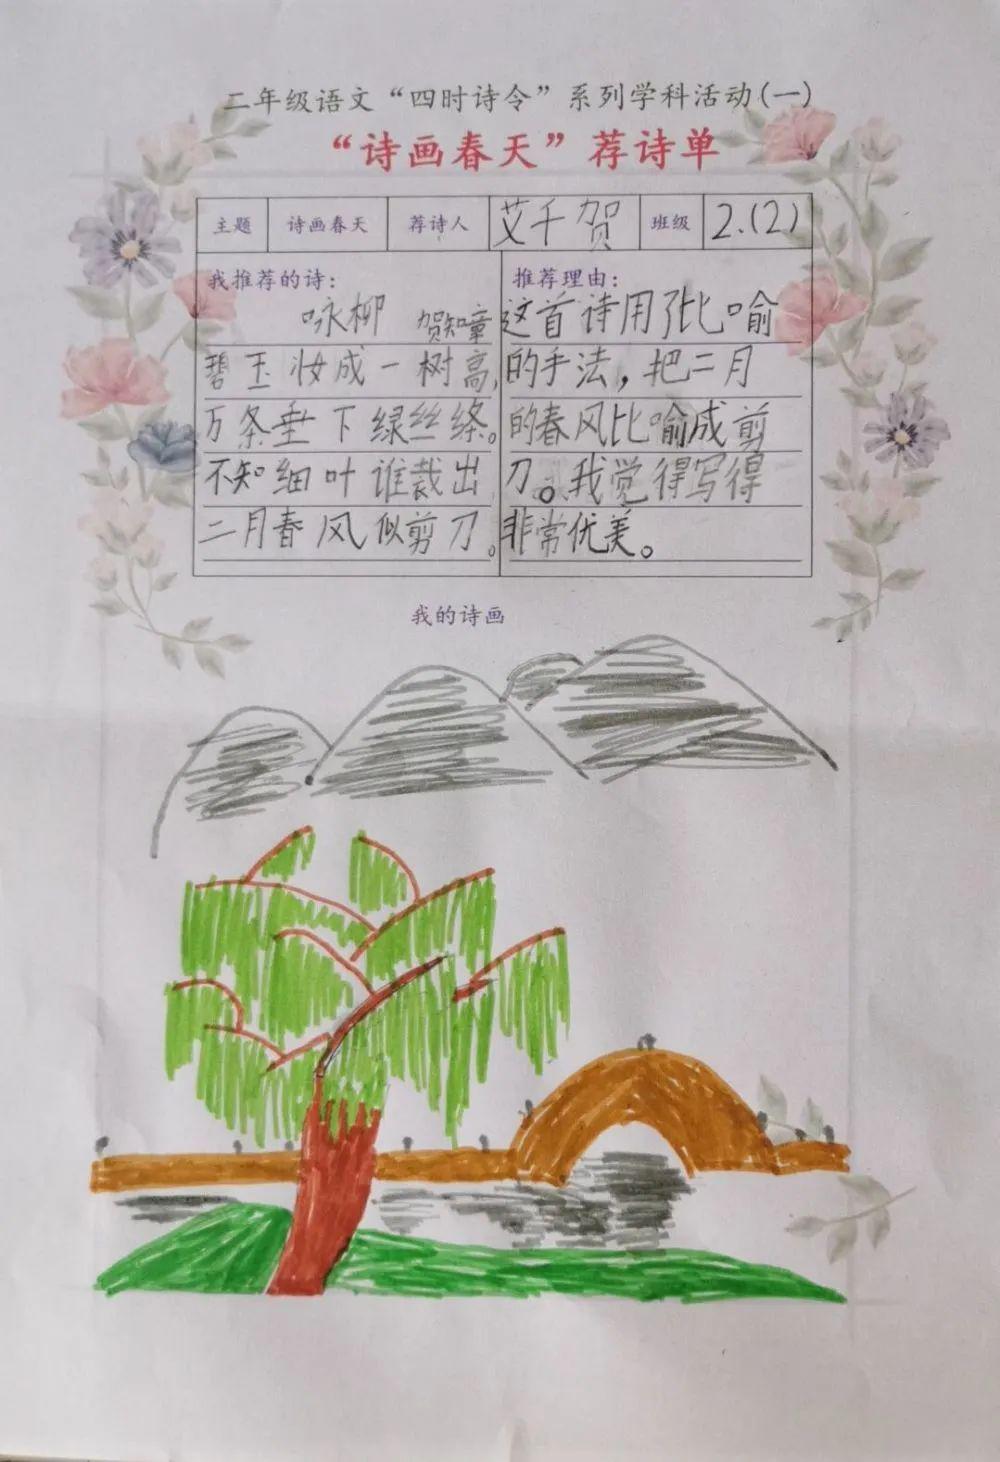 二年级语文“四时诗令”系列学科活动(一)
“诗画春天”荐诗单
主题 诗画春天 荐诗人 艾千贺 班级 2.(2)
我推荐的诗:
咏柳 贺知童
碧玉妆成一树高,
万条垂下绿丝绦。
不知细叶谁裁出
二月春风似剪刀。
推荐理由:
这首诗用了比喻
的手法，把二月
的春风比喻成剪
刀。我觉得写得
非常优美。
我的诗画